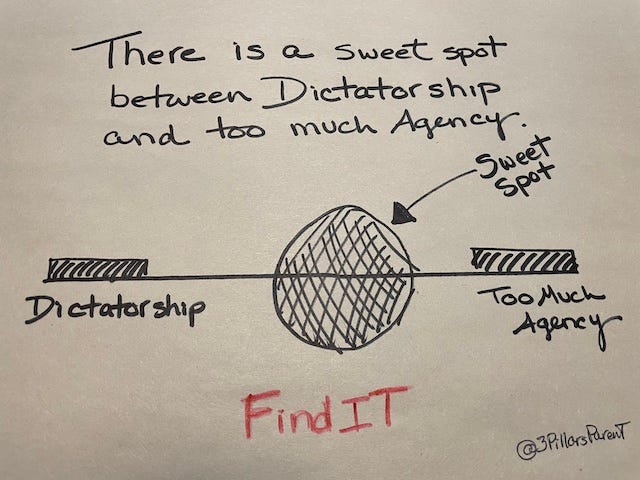 There is a sweet spot
between Dictatorship
and too much Agency.
Sweet
Spot
Dictatorship
Too Much
Agency
Find IT
@3PillarsParenT